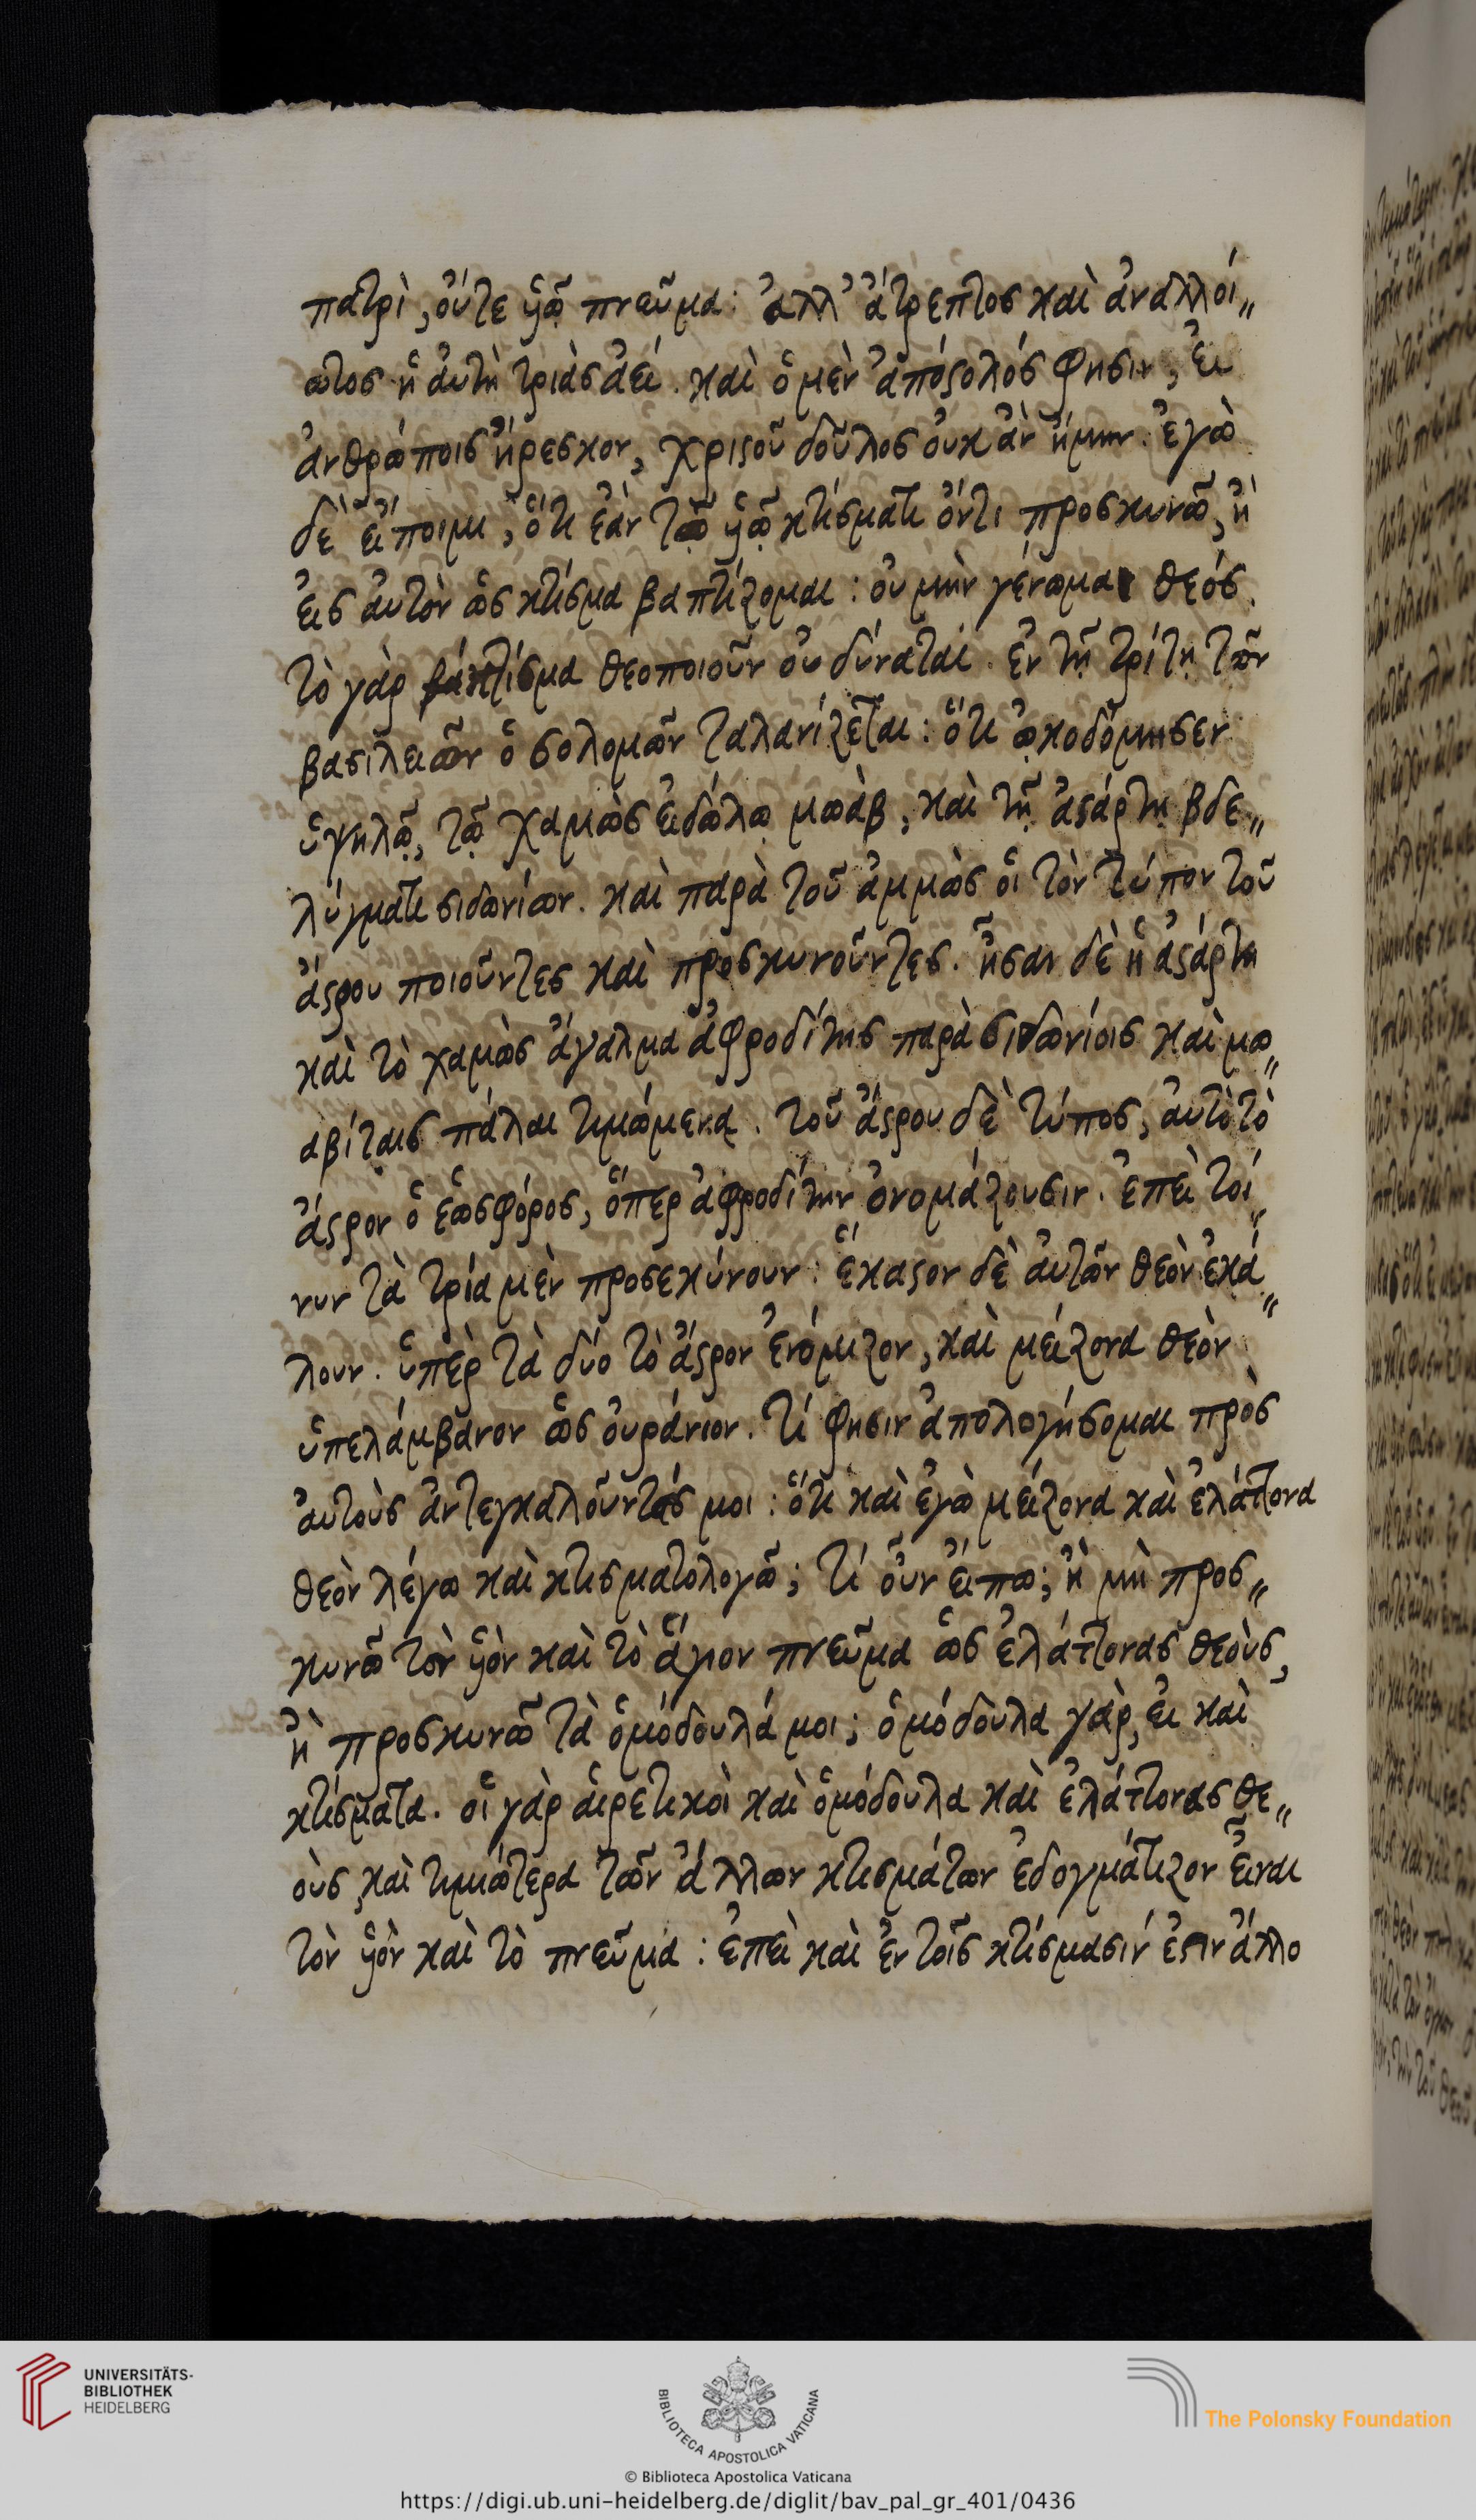 πατρὶ, οὔτε ὑῶ πνεῦμα: ἀλλ' ἄτρεπτος καὶ ἀναλλοί„
ωτος ἡ αὐτὴ τριὰς ἀεί. καὶ ὁ μὲν ἀπόστολός φησιν, εἰ
ἀνθρώποις ἤρεσκον, χριστοῦ δοῦλος οὐκ ἂν ἤμην. ἐγὼ
δὲ εἴποιμι, ὅτι ἐὰν τῷ ὑῷ κτίσματι ὄντι προσκυνῶ, ἢ
εἰς αὐτὸν ὡς κτίσμα βαπτίζομαι: οὐ μὴν γένωμαι θεός.
τὸ γὰρ βάπτισμα θεοποιοῦν οὐ δύναται. ἐν τῇ τρίτῃ τῶν
βασιλειῶν ὁ σολομῶν ταλανίζεται: ὅτι ᾠκοδόμησεν
ὑψηλῷ, τῷ χαμὼς εἰδώλῳ μωὰβ, καὶ τῇ ἀστάρτῃ βδε„
λύγματι σιδωνίων. καὶ παρὰ τοῦ ἀμμὼς οἱ τὸν τύπον τοῦ
ἄστρου ποιοῦντες καὶ προσκυνοῦντες. ἦσαν δὲ ἡ ἀστάρτη
καὶ τὸ χαμὼς ἄγαλμα ἀφροδίτης παρὰ σιδωνίοις καὶ μω„
αβίταις πάλαι τιμώμενα. τοῦ ἄστρου δὲ τύπος, αὐτὸ τὸ
ἄστρον ὁ ἑωσφόρος, ὅπερ ἀφροδίτην ὀνομάζουσιν. ἐπεὶ τοί„
νυν τὰ τρία μὲν προσεκύνουν: ἕκαστον δὲ αὐτῶν θεὸν ἐκά„
λουν. ὑπὲρ τὰ δύο τὸ ἄστρον ἐνόμιζον, καὶ μείζονα θεὸν
ὑπελάμβανον ὡς οὐράνιον. τί φησιν ἀπολογήσομαι πρὸς
αὐτοὺς ἀντεγκαλοῦντάς μοι: ὅτι καὶ ἐγὼ μείζονα καὶ ἐλάττονα
θεὸν λέγω καὶ κτισματολογῶ; τί οὖν εἴπω; ἢ μὴ προσ„
κυνῶ τὸν ὑὸν καὶ τὸ ἅγιον πνεῦμα ὡς ἐλάττονας θεοὺς,
ἢ προσκυνῶ τὰ ὁμόδουλά μοι; ὁμόδουλα γὰρ, εἰ καὶ
κτίσματα. οἱ γὰρ αἱρετικοὶ καὶ ὁμόδουλα καὶ ἐλάττονας θε„
οὺς, καὶ τιμιώτερα τῶν ἄλλων κτισμάτων ἐδογμάτιζον εἶναι
τὸν ὑὸν καὶ τὸ πνεῦμα: ἐπεὶ καὶ ἐν τοῖς κτίσμασίν ἐστιν ἄλλο
UNIVERSITÄTS-
BIBLIOTHEK
HEIDELBERG
BIBLIOTECA APOSTOLICA VATICANA
The Polonsky Foundation
© Biblioteca Apostolica Vaticana
https://digi.ub.uni-heidelberg.de/diglit/bav_pal_gr_401/0436